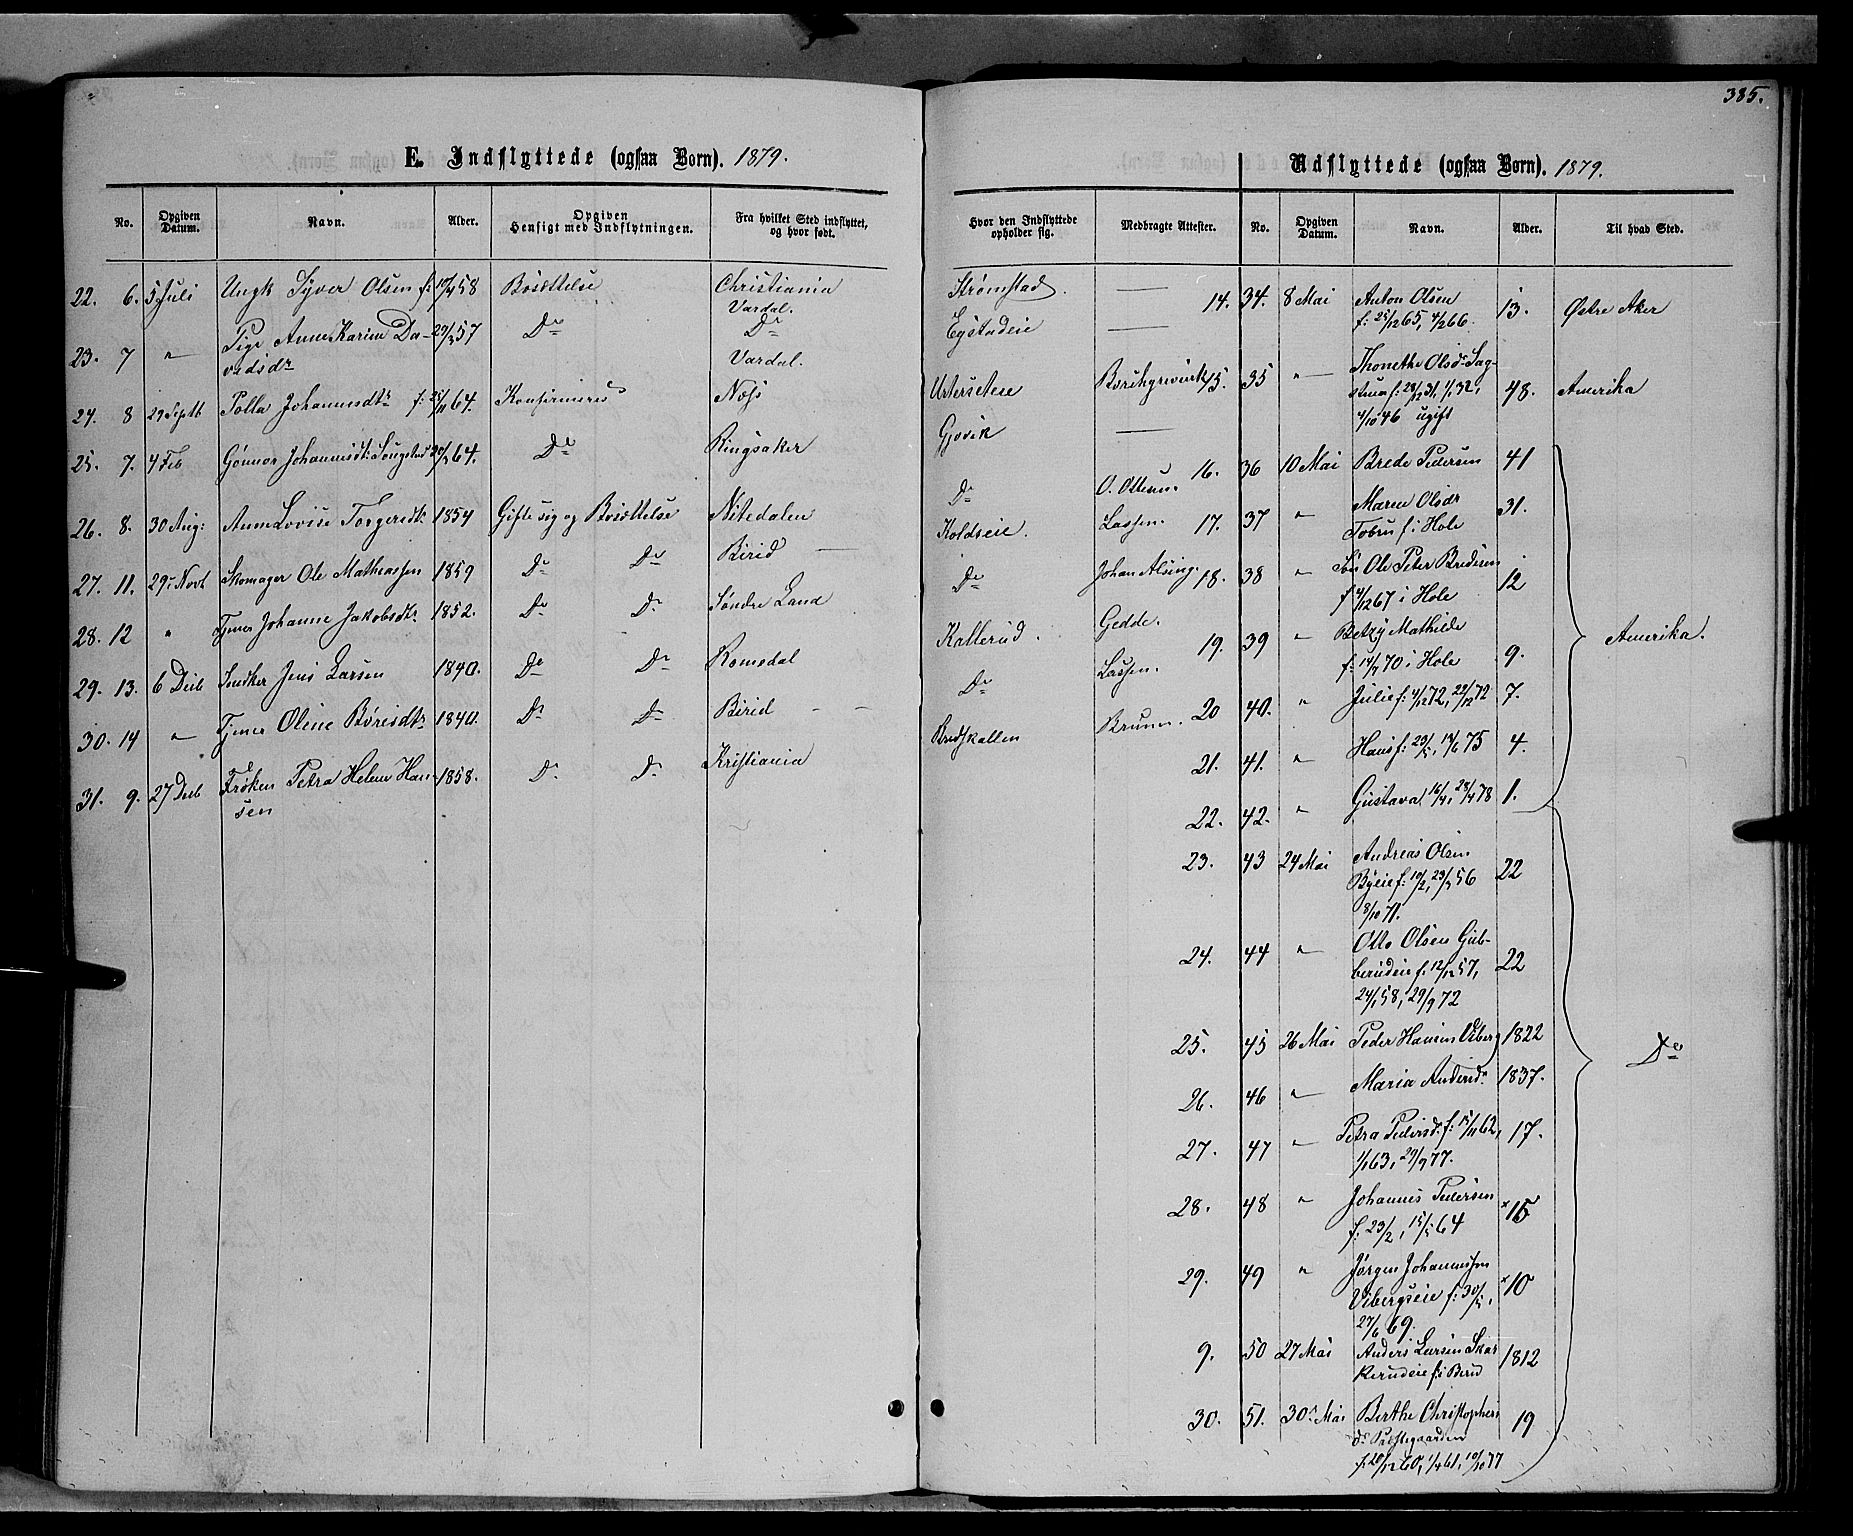 385.
E. Indflyttede (ogsaa Børn). 1879.
No. Opgiven Datum. Navn. Alder. Opgiven Hensigt med Indflytningen. Fra hvilket Sted indflyttet, og hvor født.
22. 6. 5 Juli Ungk Syver Olsen f: 58 Bosættelse Christiania
Vardal.
23. 7 " Pige Anne Karine Da- 57 Do Do
vidsdr Vardal.
24. 8 29 Septb Polla Johannesdtr f: 64. Konfirmeres Næs
25. 7. 4 Feb Gønnor Johannesdtr 64. Do Ringsaker
26. 8. 30 Aug: Anne Lovise Torgersdtr 1854 Gifte sig og Bosættelse Nitedalen
27. 11. 29 Novb Skomager Ole Mathiassen 1859 Do Do Birid
28. 12 " Tjener Johanne Jakobsdtr 1852. Do Do Søndre Land
29. 13. 6 Decb Snedker Jens Larsen 1840. Do Do Romedal
30. 14 " Tjener Oline Børesdtr 1840. Do Do Birid
31. 9. 27 Decb Frøken Petra Helene Han- 1858. Do Do Kristiania
sen
Hvor den Indflyttede opholder sig. Medbragte Attester.
Strømstad.
Egstadeie
Gjøvik
Do O. Ottesen.
Koldseie. Lassen.
Do Johan Alsing.
Kallerud. Gedde.
Do Lassen.
Bredskallen Bruun.
Udflyttede (ogsaa Børn). 1879.
No. Opgiven Datum. Navn. Alder. Til hvad Sted.
14. 34. 8 Mai Anton Olsen 13. Østre Aker
f: 25/12 65, 4/2 66.
15. 35 " Thonethe Olsdr Sag-
stuen f: 28/12 31, 1/1 32, 48. Amerika
4/10 46 ugift
16. 36 10 Mai Brede Pedersen 41
17. 37 " Maren Olsdr
Tobru f. i Hole 31.
18. 38 " Søn Ole Peter Bredesen
f 4/12 67 i Hole 12
19. 39 " Betzy Mathilde
f: 14/7 70 i Hole 9. Amerika.
20 40. " Julie f: 4/12 72, 29/12 72 7.
21. 41. " Hans f: 23/5, 13/6 75 4.
22. 42. " Gustava 16/4, 28/4 78 1.
23. 43 24 Mai Andreas Olsen
Byeie f: 10/2, 23/3 56 22
8/10 71.
24. 44 " Otto Olsen Gub-
berudeie f. 12/12 57, 22
24/1 58, 29/9 72
25. 45 26 Mai Peder Hansen 1822 Do
26. 46 " Maria Andersdr 1837.
27. 47 " Petra Pedersdr f: 15/11 62, 17.
1/1 63, 29/9 77.
28. 48 " Johannes Pedersen
f: 23/2, 15/5 64 × 15
29. 49 " Jørgen Johannessen
Vibergseie f: 30/5, × 10
27/6 69.
9. 50 27 Mai Anders Larsen Skar
kerudeie f: i Berid 1812
30. 51. 30 Mai Berthe Christophers
dr Præstegaarden 19
f: 20/12 60, 1/4 61, 10/10 77